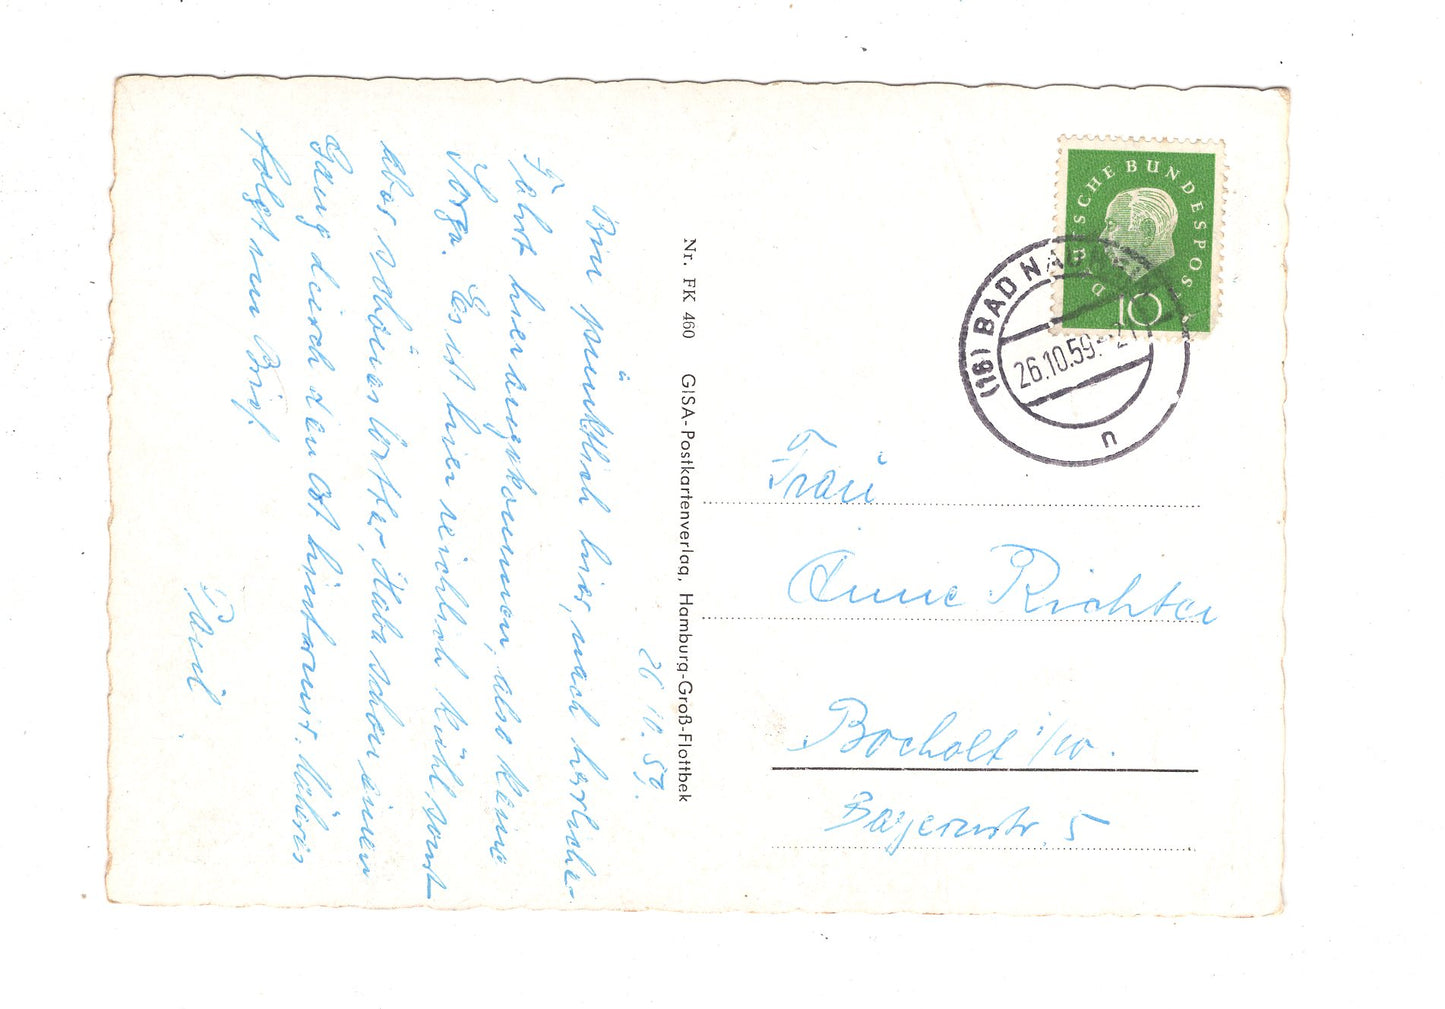 26.10.59.
Bin pünktlich hier, nach herrlicher
Fahrt hier angekommen, also keine
Sorge. Es ist hier reichlich kühl, sonst
aber schöner Ort. Habe schon einen
Gang durch den Ort hinter mir. Näheres
folgt im Brief.
Paul
Nr. FK 460 GISA-Postkartenverlag, Hamburg-Groß-Flottbek
DEUTSCHE BUNDESPOST
10
(16) BAD NAUHEIM
26.10.59.-21
n
Frau
Änne Richter
Bocholt i/W.
Bayernstr. 5